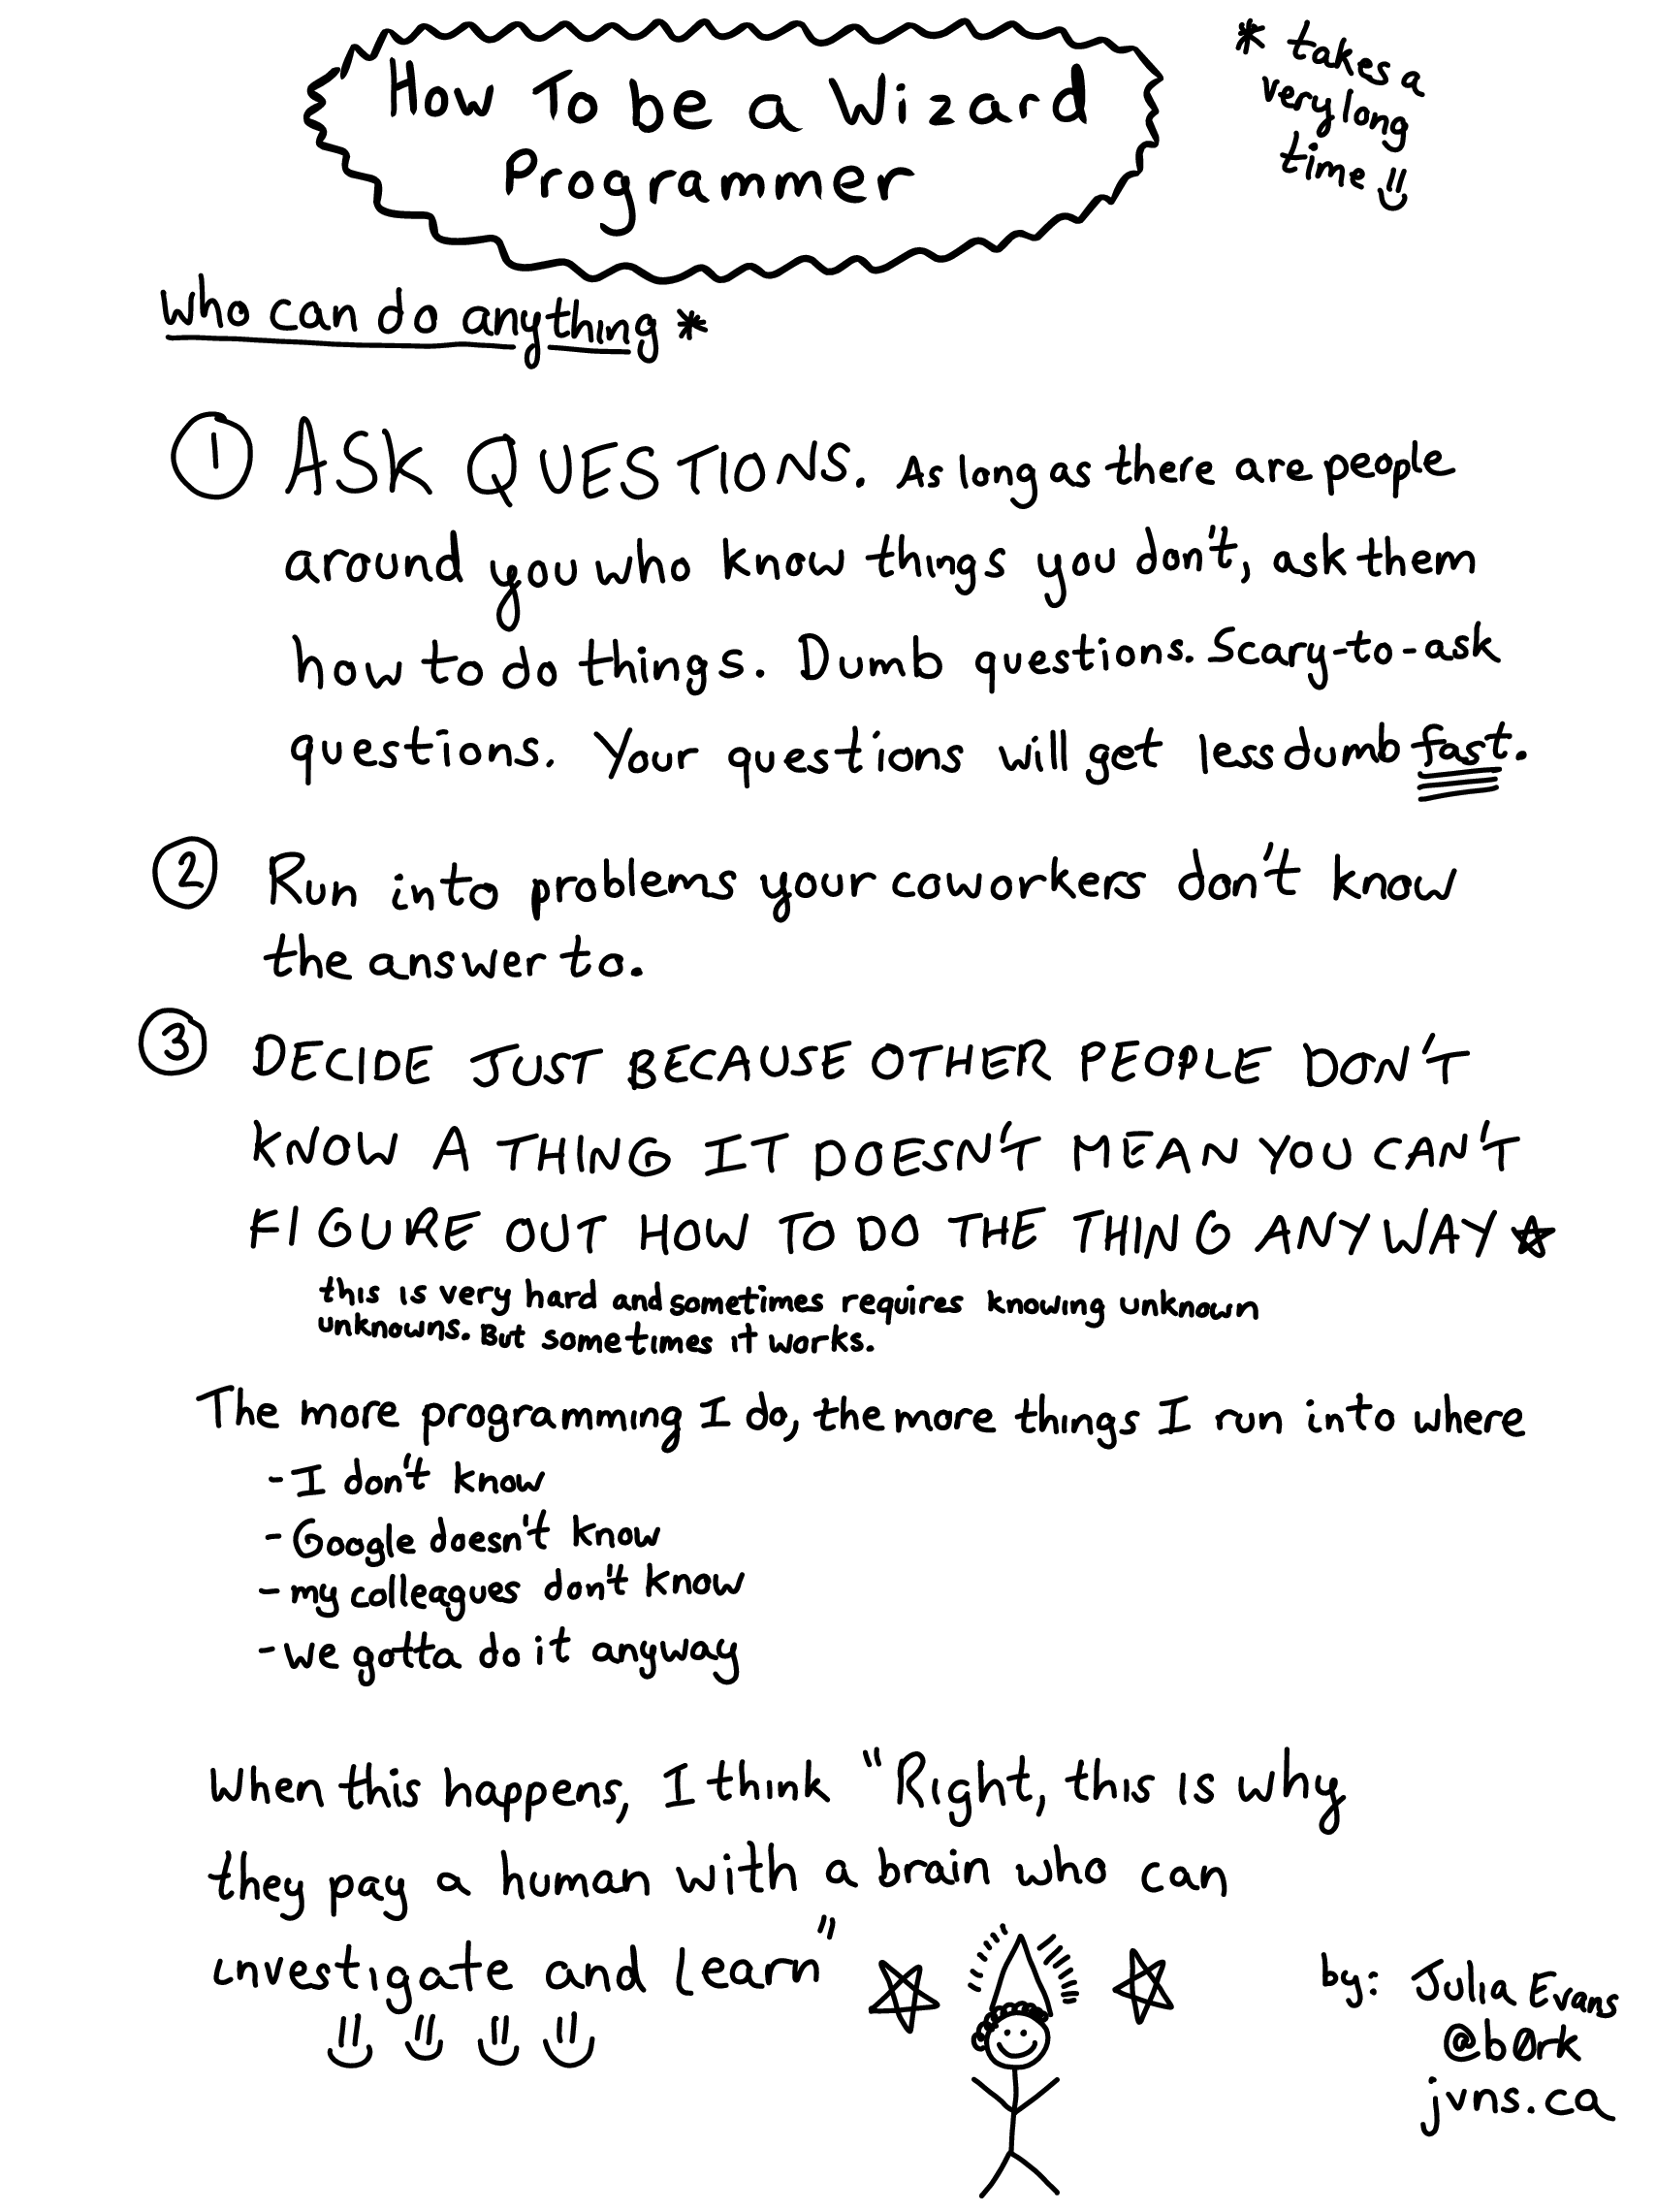 How To be a Wizard
Programmer
* takes a
very long
time
who can do anything *
1 ASK QUESTIONS. As long as there are people
around you who know things you don't, ask them
how to do things. Dumb questions. Scary-to-ask
questions. Your questions will get less dumb fast.
2 Run into problems your coworkers don't know
the answer to.
3 DECIDE JUST BECAUSE OTHER PEOPLE DON'T
KNOW A THING IT DOESN'T MEAN YOU CAN'T
FIGURE OUT HOW TO DO THE THING ANYWAY
this is very hard and sometimes requires knowing unknown
unknowns. But sometimes it works.
The more programming I do, the more things I run into where
- I don't know
- Google doesn't know
- my colleagues don't know
- we gotta do it anyway
When this happens, I think "Right, this is why
they pay a human with a brain who can
investigate and learn"
by: Julia Evans
@b0rk
jvns.ca